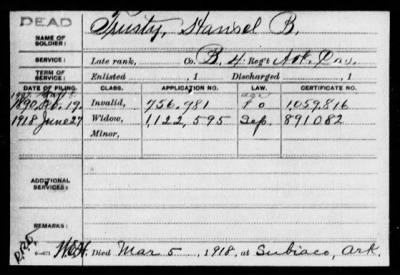 DEAD
NAME OF SOLDIER: Trusty, Stansel B.
SERVICE: Late rank, Co. B, 4 Reg't Ark. Inf.
TERM OF SERVICE: Enlisted , 1 Discharged , 1
DATE OF FILING. CLASS. APPLICATION NO. LAW. CERTIFICATE NO.
1890, Feb. 19. Invalid, 756.781 1,059,816
1918 June 27 Widow, 1,122,595 Sep. 891082
Minor,
ADDITIONAL SERVICES:
REMARKS:
Died Mar 5, 1918, at Subiaco, Ark.